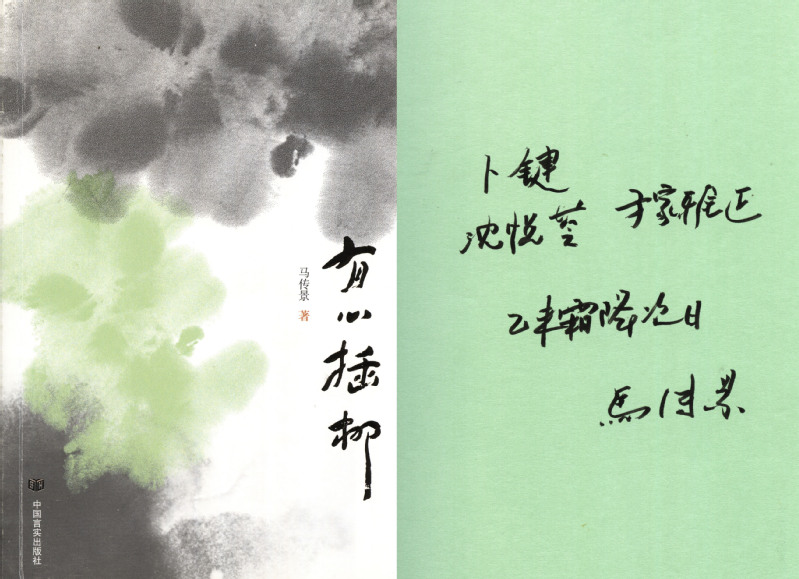 有心插柳
马传景 著
中国言实出版社
卜键
沈悦苓 方家雅正
乙未霜降次日
馬传景